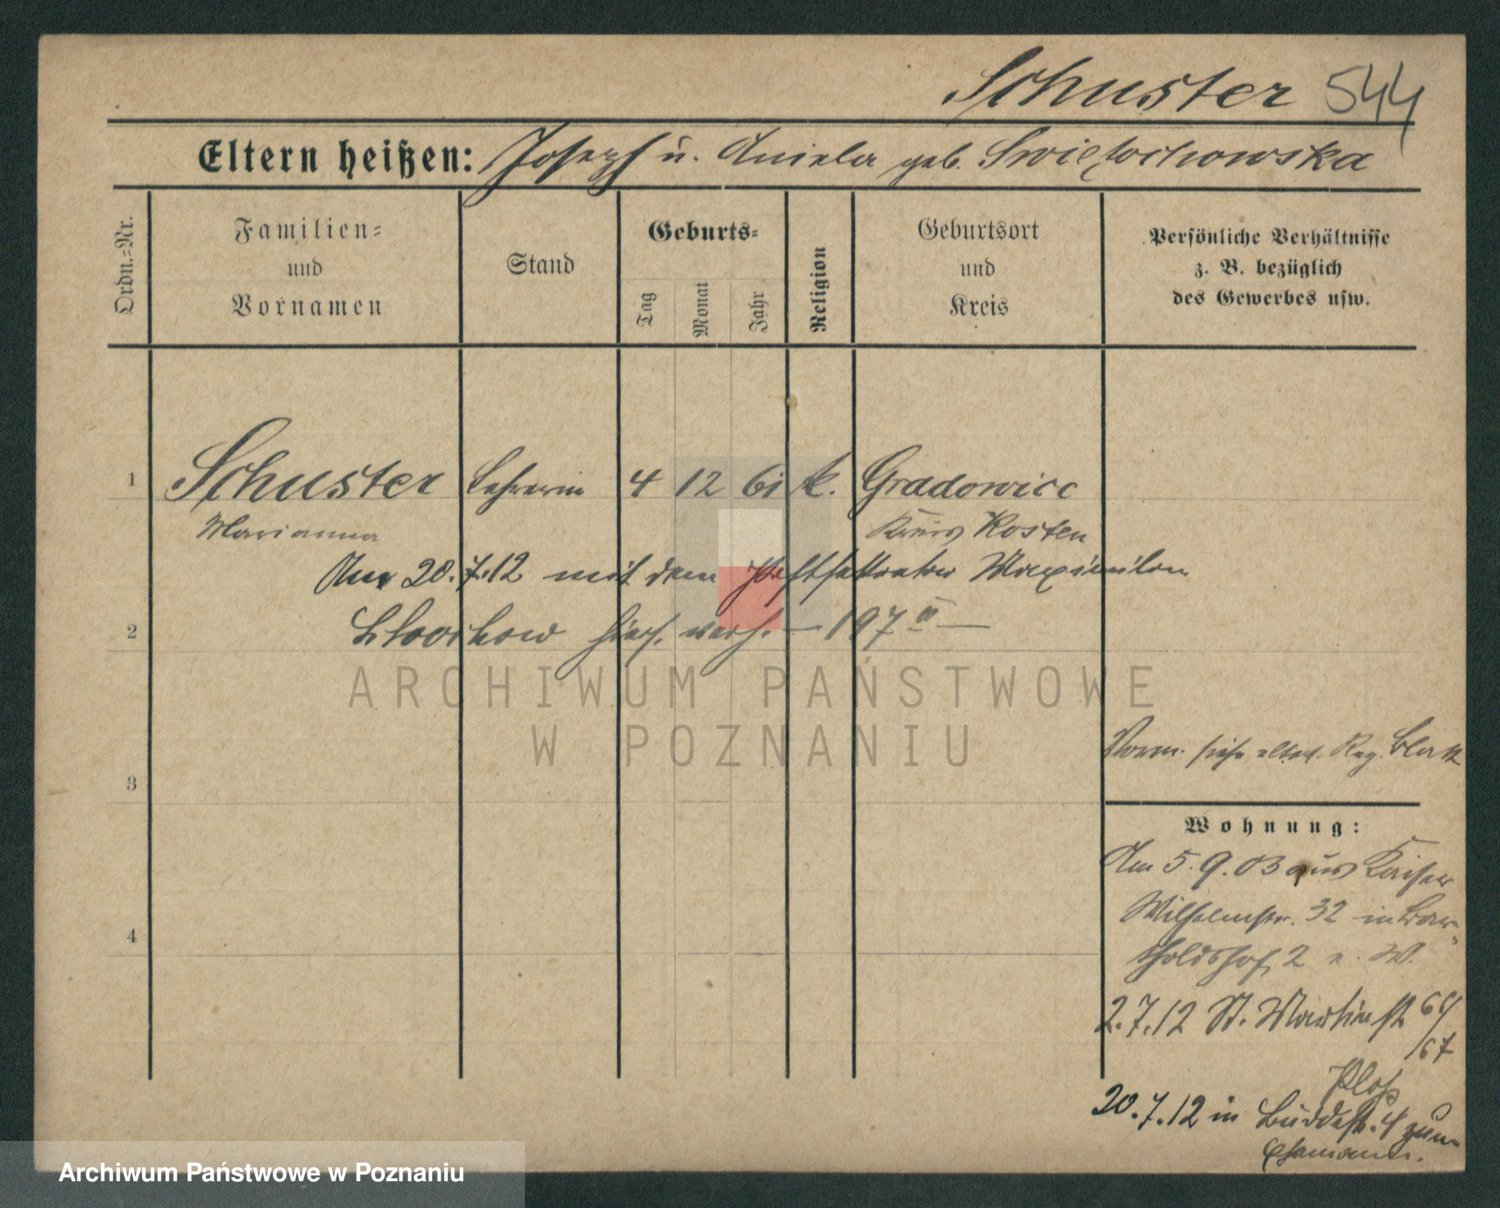 Schuster 544
Eltern heißen: Joseph u. Aniela geb. Swietochowska
Ordn.=Nr.
Familien=
und
Vornamen
Stand
Geburts=
Tag
Monat
Jahr
Religion
Geburtsort
und
Kreis
Persönliche Verhältnisse
z. B. bezüglich
des Gewerbes usw.
1 Schuster Lehrerin 4 12 61 k. Gradowice
Marianna Kreis Kosten
Am 20.7.12 mit dem Maximilian
2 hier verh. — 197 III —
ARCHIWUM PAŃSTWOWE
W POZNANIU
Vorm. siehe alter. Reg. Blatt
3
Wohnung:
Am 5.9.03 aus Kaiser
Wilhelmstr. 32 in Bar-
4
tholdshof 2 n. W.
2.7.12 St. Martinstr 66/
67
20.7.12 in 4 zum
Ehemann.
Archiwum Państwowe w Poznaniu